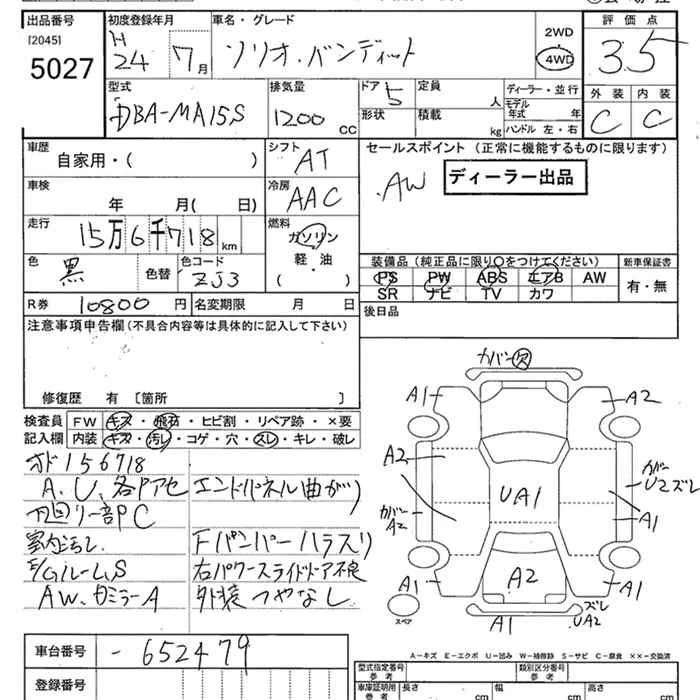 出品番号 初度登録年月 車名・グレード 評価点
[2045] H 24年 7月 ソリオ・バンディット 2WD 4WD 3.5
5027
型式 排気量 ドア 5 定員 人 ディーラー・並行 外装 内装
DBA-MA15S 1200 CC 形状 積載 kg モデル年式 年 C C
ハンドル 左・右
車歴 シフト セールスポイント (正常に機能するものに限ります)
自家用・( ) AT
AW ディーラー出品
車検 年 月( 日) 冷房 AAC
走行 15万6千718km 燃料 ガソリン 軽油 ( )
装備品 (純正品に限り○をつけてください) 新車保証書
色 黒 色替 色コード ZJ3 PS PW ABS エアB AW 有・無
SR ナビ TV カワ
R券 10800円 名変期限 月 日 後日品
注意事項申告欄(不具合内容等は具体的に記入して下さい)
修復歴 有 〔箇所 〕
検査員 FW キズ・飛石・ヒビ割・リペア跡・×要
記入欄 内装 キズ・汚れ・コゲ・穴・スレ・キレ・破レ
オド156718
A、U、各Pアセ エンドパネル曲がり
凹回リ一部PC
室内汚れ Fバンパーハラスリ
E/Gルーム、S 右パワースライドドア不良
AW、カミラーA 外装つやなし
車台番号 -652479
登録番号
カバー欠
A1 A2
A2 カバーU2ズレ
UA1
カバーA2 A1
A1 A2 A1
スペア A1 ズレUA2
A-キズ E-エクボ U-凹み W-補修跡 S-サビ C-腐食 ××-交換済
型式指定番号 参考 類別区分番号 参考
車庫証明用 参考 長さ cm 幅 cm 高さ cm